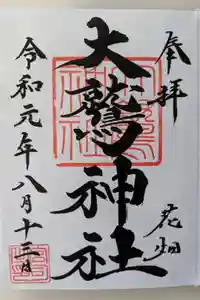 奉拝
花畑
大鷲神社
令和元年八月十三日